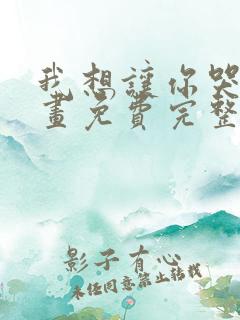 我想讓你哭
畫免費完整
影子有心
未经同意禁止转载